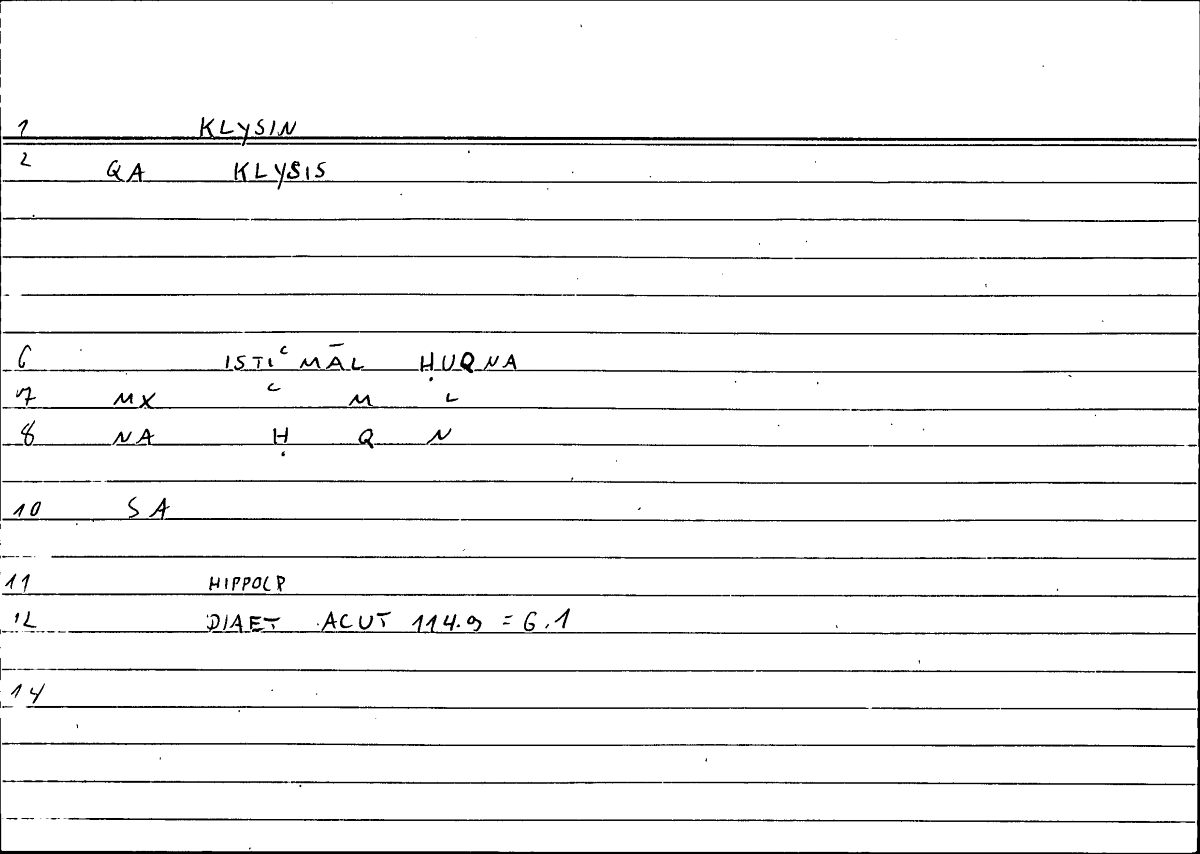 1 KLYSIN
2 QA KLYSIS
6 ISTIʿMĀL ḤUQNA
7 MX ʿ M L
8 NA Ḥ Q N
10 SA
11 HIPPOCR
12 DIAET ACUT 114.9 = 6.1
14